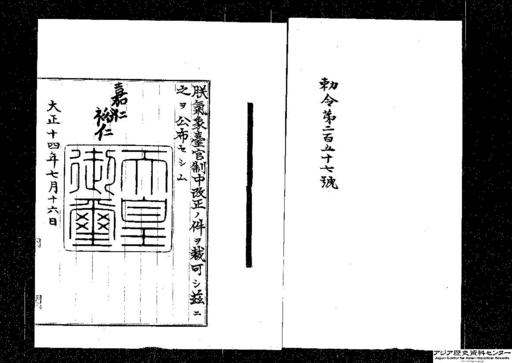 勅令第二百五十七號
朕氣象臺官制中改正ノ件ヲ裁可シ茲ニ
之ヲ公布セシム
嘉仁
裕仁
天皇
御璽
大正十四年七月十六日
アジア歴史資料センター
Japan Center for Asian Historical Records